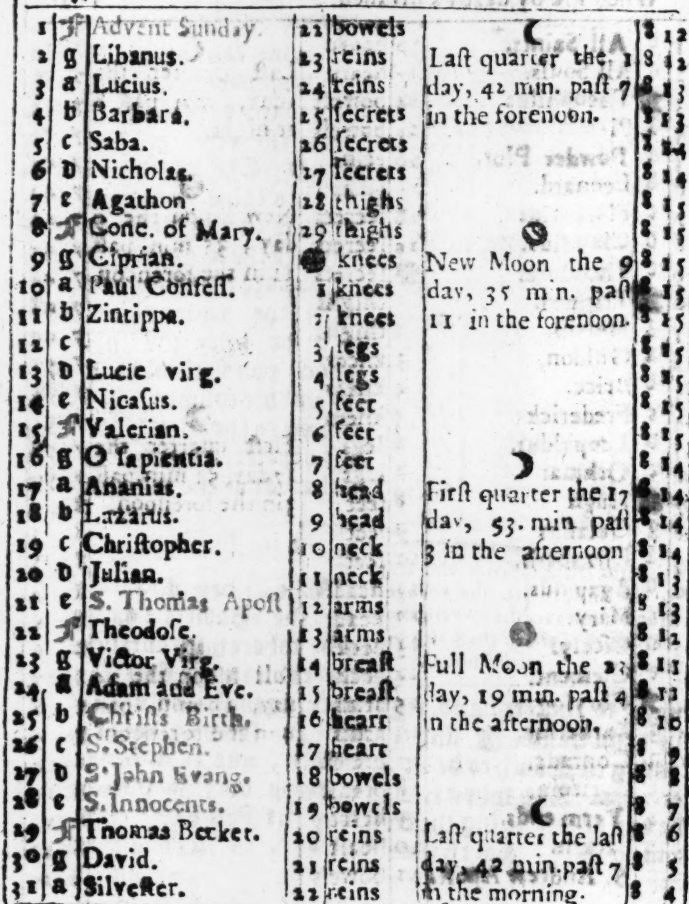 1 F Advent Sunday. 22 bowels 8 12
2 g Libanus. 23 reins Laſt quarter the 1 8 12
3 a Lucius. 24 reins day, 42 min. paſt 7 8 13
4 b Barbara. 25 ſecrets in the forenoon. 8 13
5 c Saba. 26 ſecrets 8 14
6 D Nicholas. 27 ſecrets 8 14
7 e Agathon 28 thighs 8 14
8 F Conc. of Mary. 29 thighs 8 15
9 g Ciprian. knees New Moon the 9 8 15
10 a Paul Confeſſ. 1 knees day, 35 min. paſt 8 15
11 b Zintippa. 2 knees 11 in the forenoon. 8 15
12 c 3 legs 8 15
13 D Lucie virg. 4 legs 8 15
14 e Nicaſus. 5 feet 8 15
15 F Valerian. 6 feet 8 15
16 g O ſapientia. 7 feet 8 14
17 a Ananias. 8 head Firſt quarter the 17 8 14
18 b Lazarus. 9 head day, 53. min paſt 8 14
19 c Chriſtopher. 10 neck 3 in the afternoon 8 14
20 D Julian. 11 neck 8 13
21 e S. Thomas Apoſt 12 arms 8 13
22 F Theodoſe. 13 arms 8 12
23 g Victor Virg. 14 breaſt Full Moon the 23 8 11
24 a Adam and Eve. 15 breaſt. day, 19 min. paſt 4 8 11
25 b Chriſts Birth. 16 heart in the afternoon. 8 10
26 c S. Stephen. 17 heart 8 9
27 D S. John Evang. 18 bowels 8 8
28 e S. Innocents. 19 bowels 8 7
29 F Thomas Becket. 20 reins Laſt quarter the laſt 8 6
30 g David. 21 reins day, 42 min. paſt 7 8 5
31 a Silveſter. 22 reins in the morning. 8 4